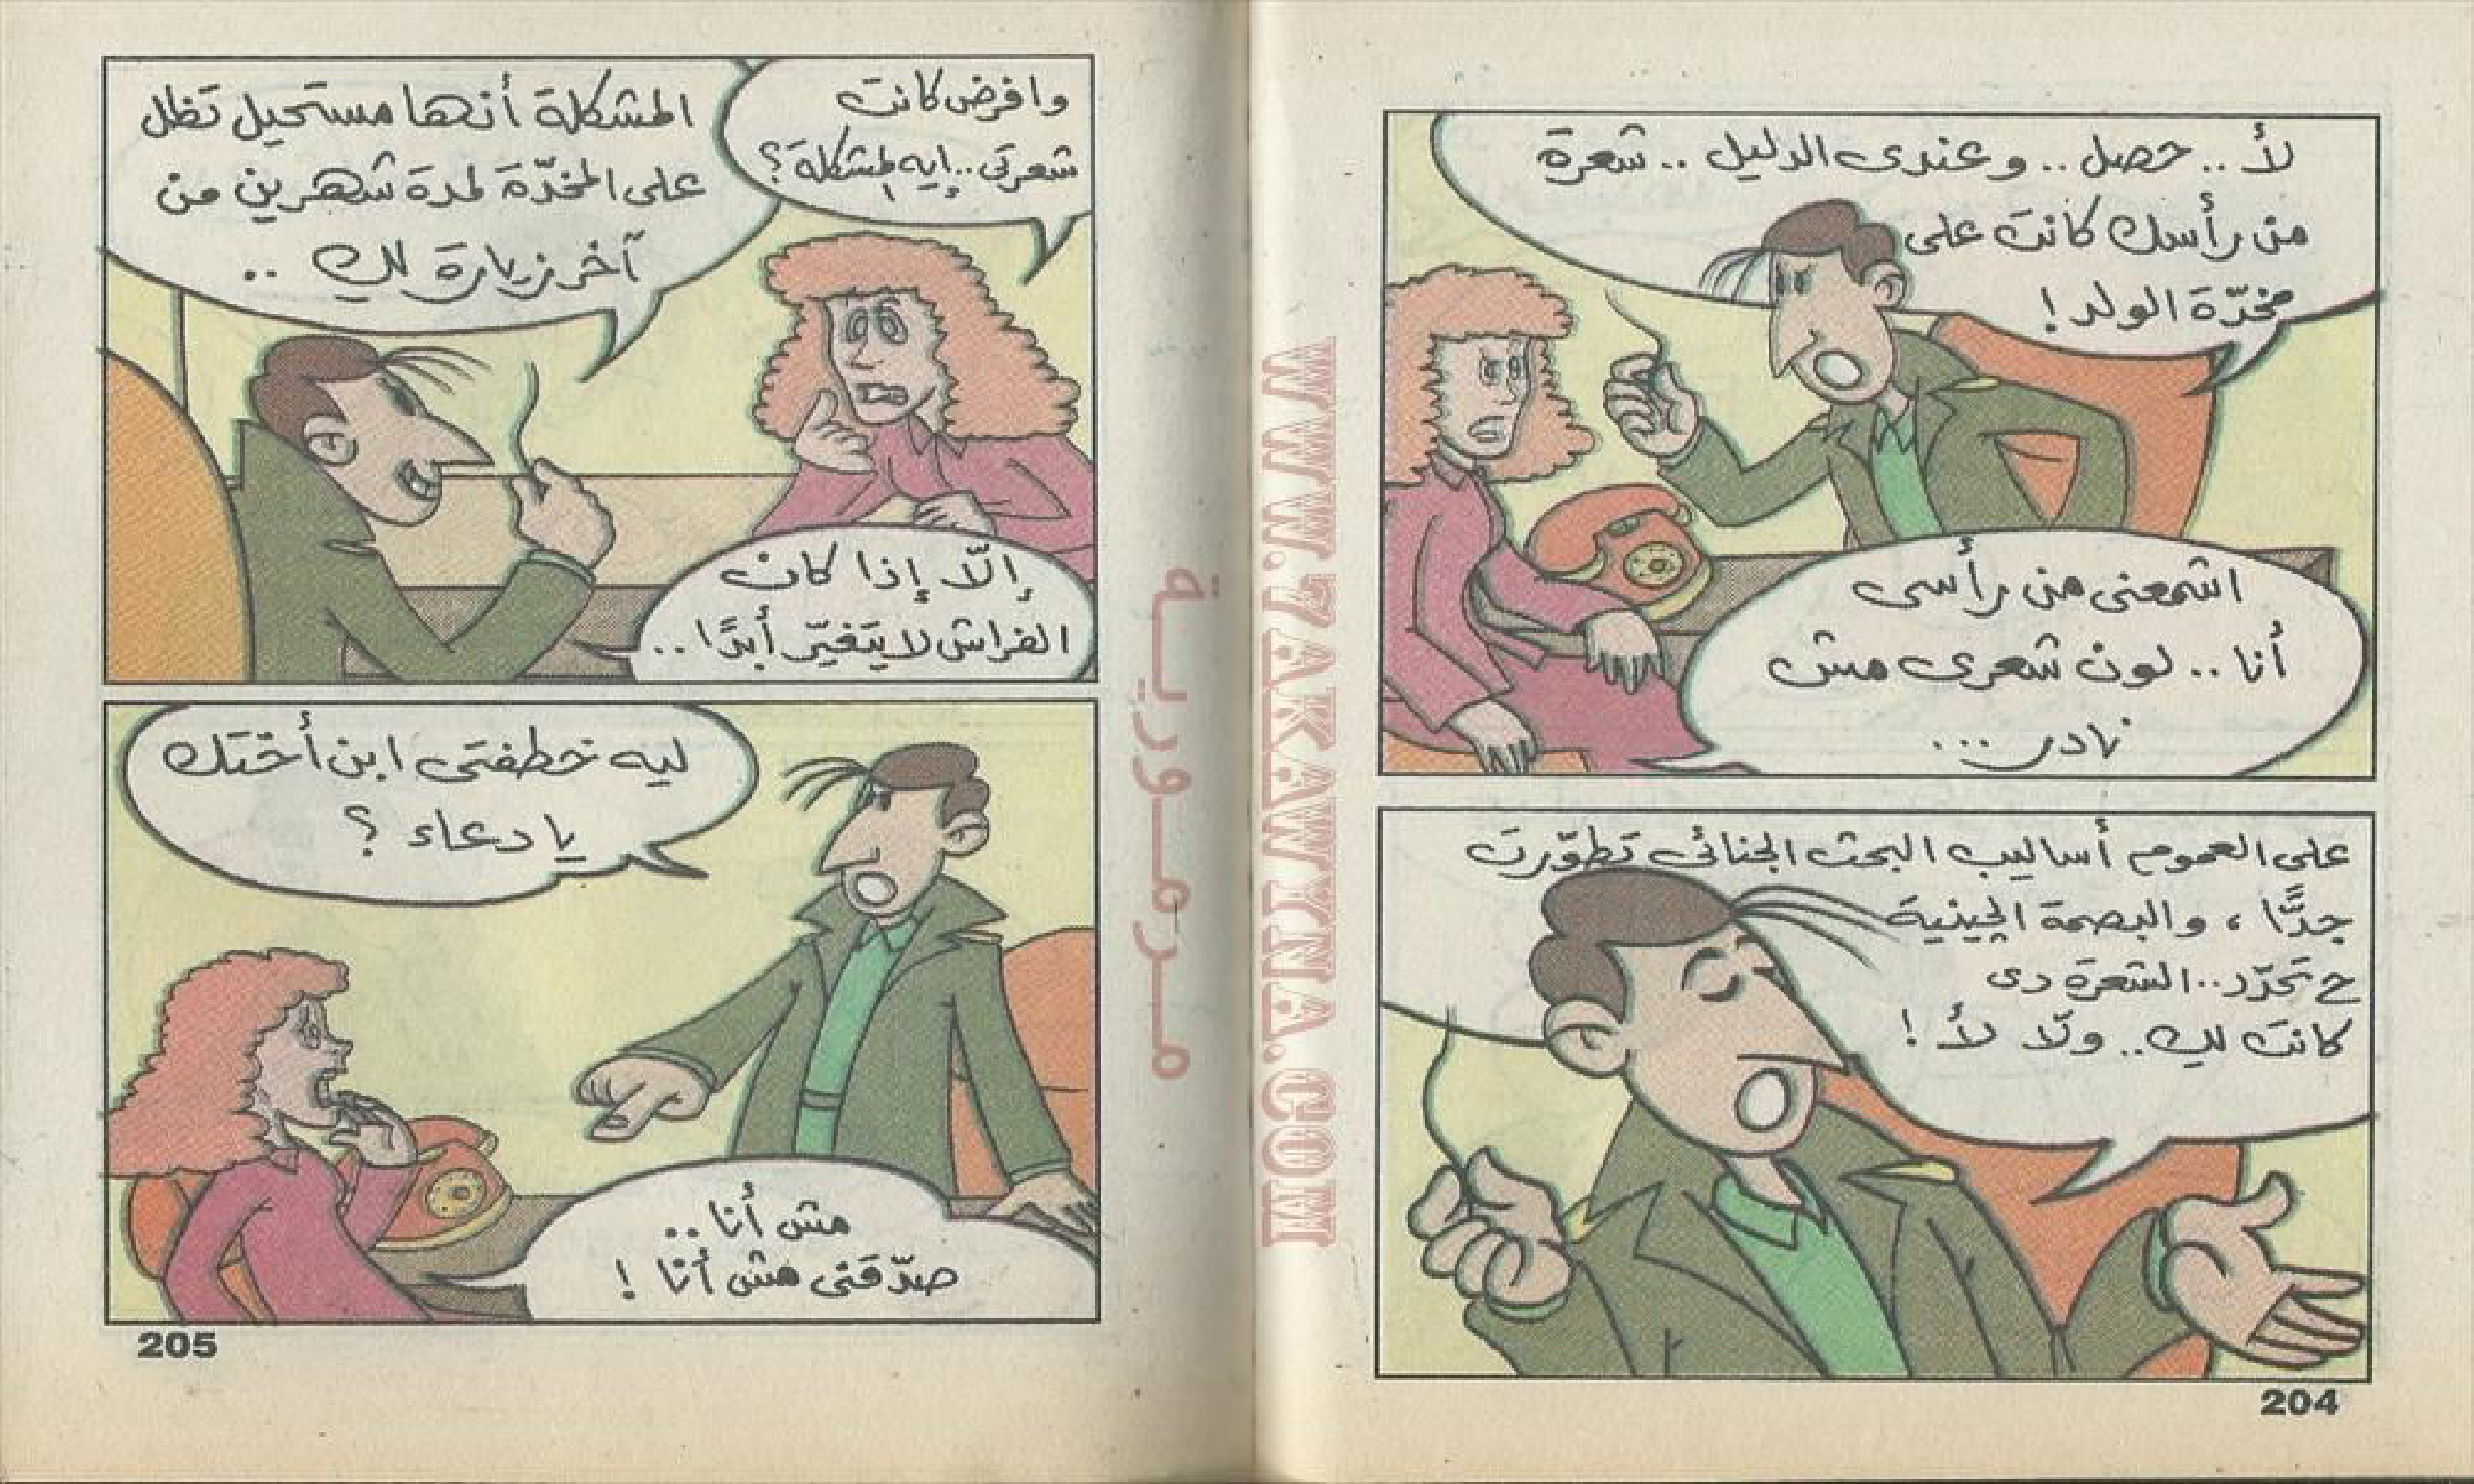 لأ .. حصل .. وعندى الدليل .. شعرة
من رأسك كانت على
مخدّة الولد !
اشمعنى من رأسى
أنا .. لون شعرى مش
نادر ...
على العموم أساليب البحث الجنائى تطوّرت
جدًّا ، والبصمة الچينية
ح تحدّد .. الشعرة دى
كانت لك .. ولّا لأ !
204
وافرض كانت
شعرتى .. إيه المشكلة ؟
المشكلة أنها مستحيل تظل
على المخدّة لمدة شهرين من
آخر زيارة لك ..
إلّا إذا كان
الفراش لا يتغيّر أبدًا ..
ليه خطفتى ابن أختك
يا دعاء ؟
مش أنا ..
صدّقنى مش أنا !
205
مـرمـوريـة
WWW.7AKAWYNA.COM